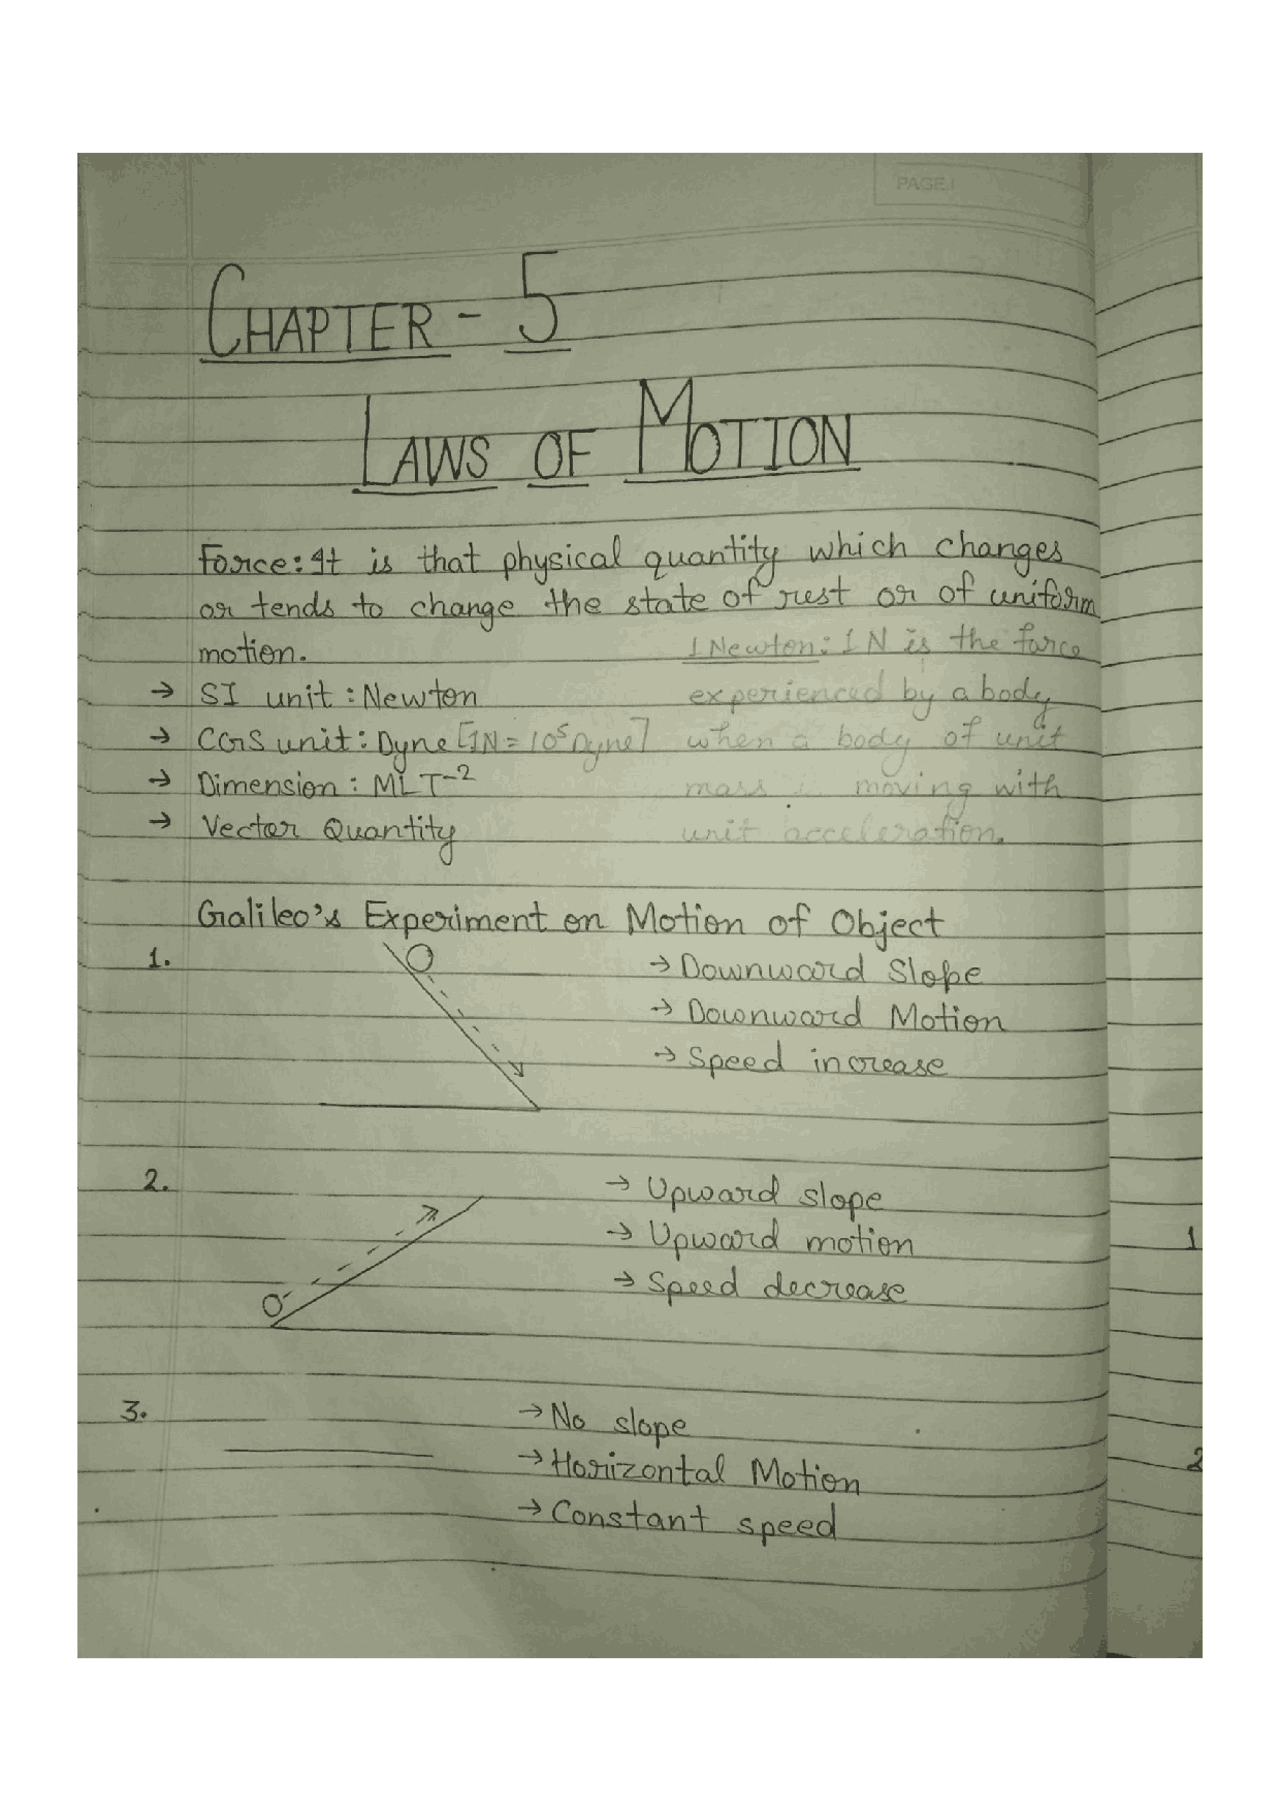 PAGE
CHAPTER - 5
LAWS OF MOTION
Force: It is that physical quantity which changes
or tends to change the state of rest or of uniform
motion.
1 Newton: 1 N is the force
→ SI unit : Newton
experienced by a body
→ CGS unit : Dyne [1N = 10⁵ Dyne]
when a body of unit
→ Dimension : MLT⁻²
mass is moving with
→ Vector Quantity
unit acceleration.
Galileo's Experiment on Motion of Object
1.
→ Downward Slope
→ Downward Motion
→ Speed increase
2.
→ Upward slope
→ Upward motion
→ Speed decrease
3.
→ No slope
→ Horizontal Motion
→ Constant speed
1
2